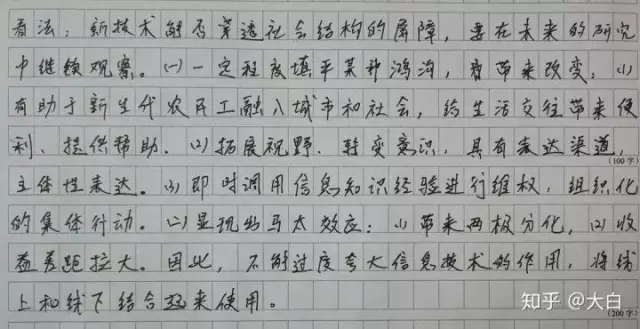 看法：新技术能否穿透社会结构的屏障，要在未来的研究
中继续观察。(一)一定程度填平某种鸿沟，有带来改变：(1)
有助于新生代农民工融入城市和社会，给生活交往带来便
利、提供帮助。(2)拓展视野、转变意识，具有表达渠道，
(100字)
主体性表达。(3)即时调用信息知识经验进行维权，组织化
的集体行动。(二)显现出马太效应：(1)带来两极分化，(2)收
益差距拉大。因此，不能过度夸大信息技术的作用，将线
上和线下结合起来使用。
知乎 @大白
(200字)